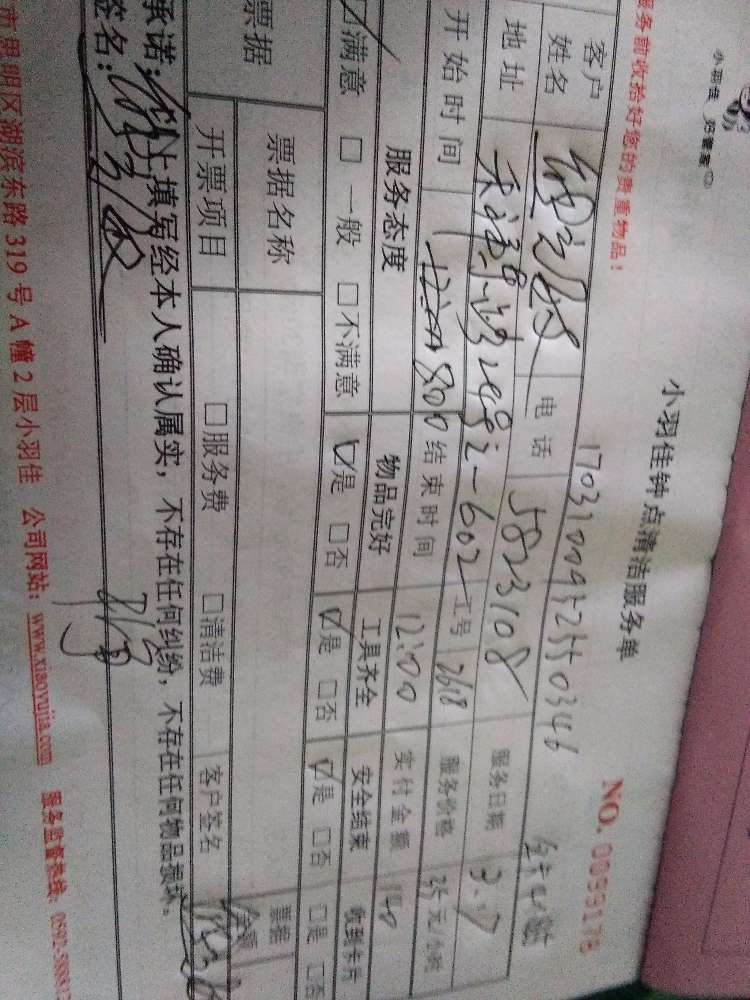 小羽佳 好管家
服务前收拾好您的贵重物品！
小羽佳钟点清洁服务单
NO. 0099178
17031009525550346
客户姓名 电话 5823108 服务日期 3.7
地址 602 工号 2618 服务价格 35元/小时
开始时间 800 结束时间 12:00 实付金额 140
服务态度 物品完好 工具齐全 安全结束 收到卡片
☑满意 □一般 □不满意 ☑是 □否 ☑是 □否 ☑是 □否 □是 □否
票据 票据名称 票据金额
开票项目 □服务费 □清洁费 客户签名
承诺：以上填写经本人确认属实，不存在任何纠纷，不存在任何物品损坏。
签名：
市思明区湖滨东路319号A幢2层小羽佳 公司网站：www.xiaoyujia.com 服务监督热线：0592-588812